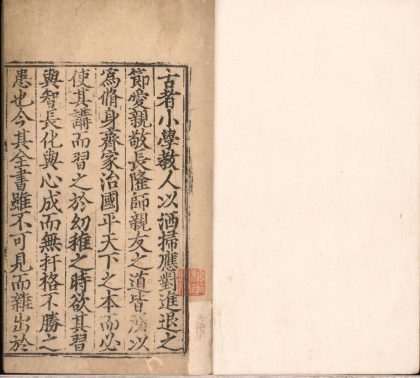 古者小學教人以洒掃應對進退之
節愛親敬長隆師親友之道皆所以
爲脩身齊家治國平天下之本而必
使其講而習之於幼稚之時欲其習
與智長化與心成而無扞格不勝之
患也今其全書雖不可見而雜出於